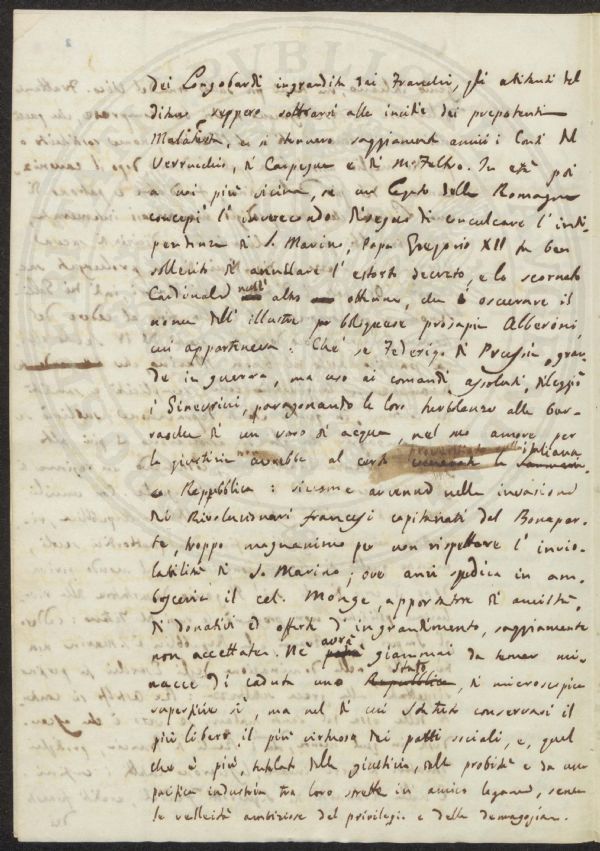 dei Longobardi ingrandita dai Franchi, gli abitanti del
Titano seppero sottrarsi alle insidie dei prepotenti
Malatesta, e si tennero saggiamente amici i Conti del
Verrucchio, di Carpegna e di M. Feltro. In età poi
a noi più vicina, se un Legato della Romagna
concepì l'inverecondo disegno di inculcare l'indi-
pendenza di S. Marino, Papa Gregorio XII fu ben
sollecito di annullare l'estorto decreto, e lo scornato
Cardinale null'altro ottenne, che oscurare il
nome dell'illustre borghese prosapia Alberoni,
cui apparteneva: Che se Federigo di Prussia, gran-
de in guerra, ma uso ai comandi assoluti, dileggiò
i Ginevrini, paragonando le loro turbolenze alle bur-
rasche di un vaso di acqua, nel suo amore per
la giustizia avrebbe al certo la italiana
Repubblica: siccome avvenne nelle invasioni
dei Rivoluzionari francesi capitanati dal Bonapar-
te, troppo magnanimo per non rispettare l'invio-
labilità di S. Marino; ove anzi spediva in am-
basceria il cel. Monge, apportatore di amistà,
di donativi ed offerte d'ingrandimento, saggiamente
non accettate. Nè avrà giammai da temer mi-
nacce di caduta uno Stato, di microscopica
superficie sì, ma nel di cui Statuto conservasi il
più libero, il più virtuoso dei patti sociali, e, quel
che è più, tutelato dalla giustizia, dalla probità e da una
pacifica industria tra loro strette in amico legame, senza
le velleità ambiziose del privilegio e della demagogia.